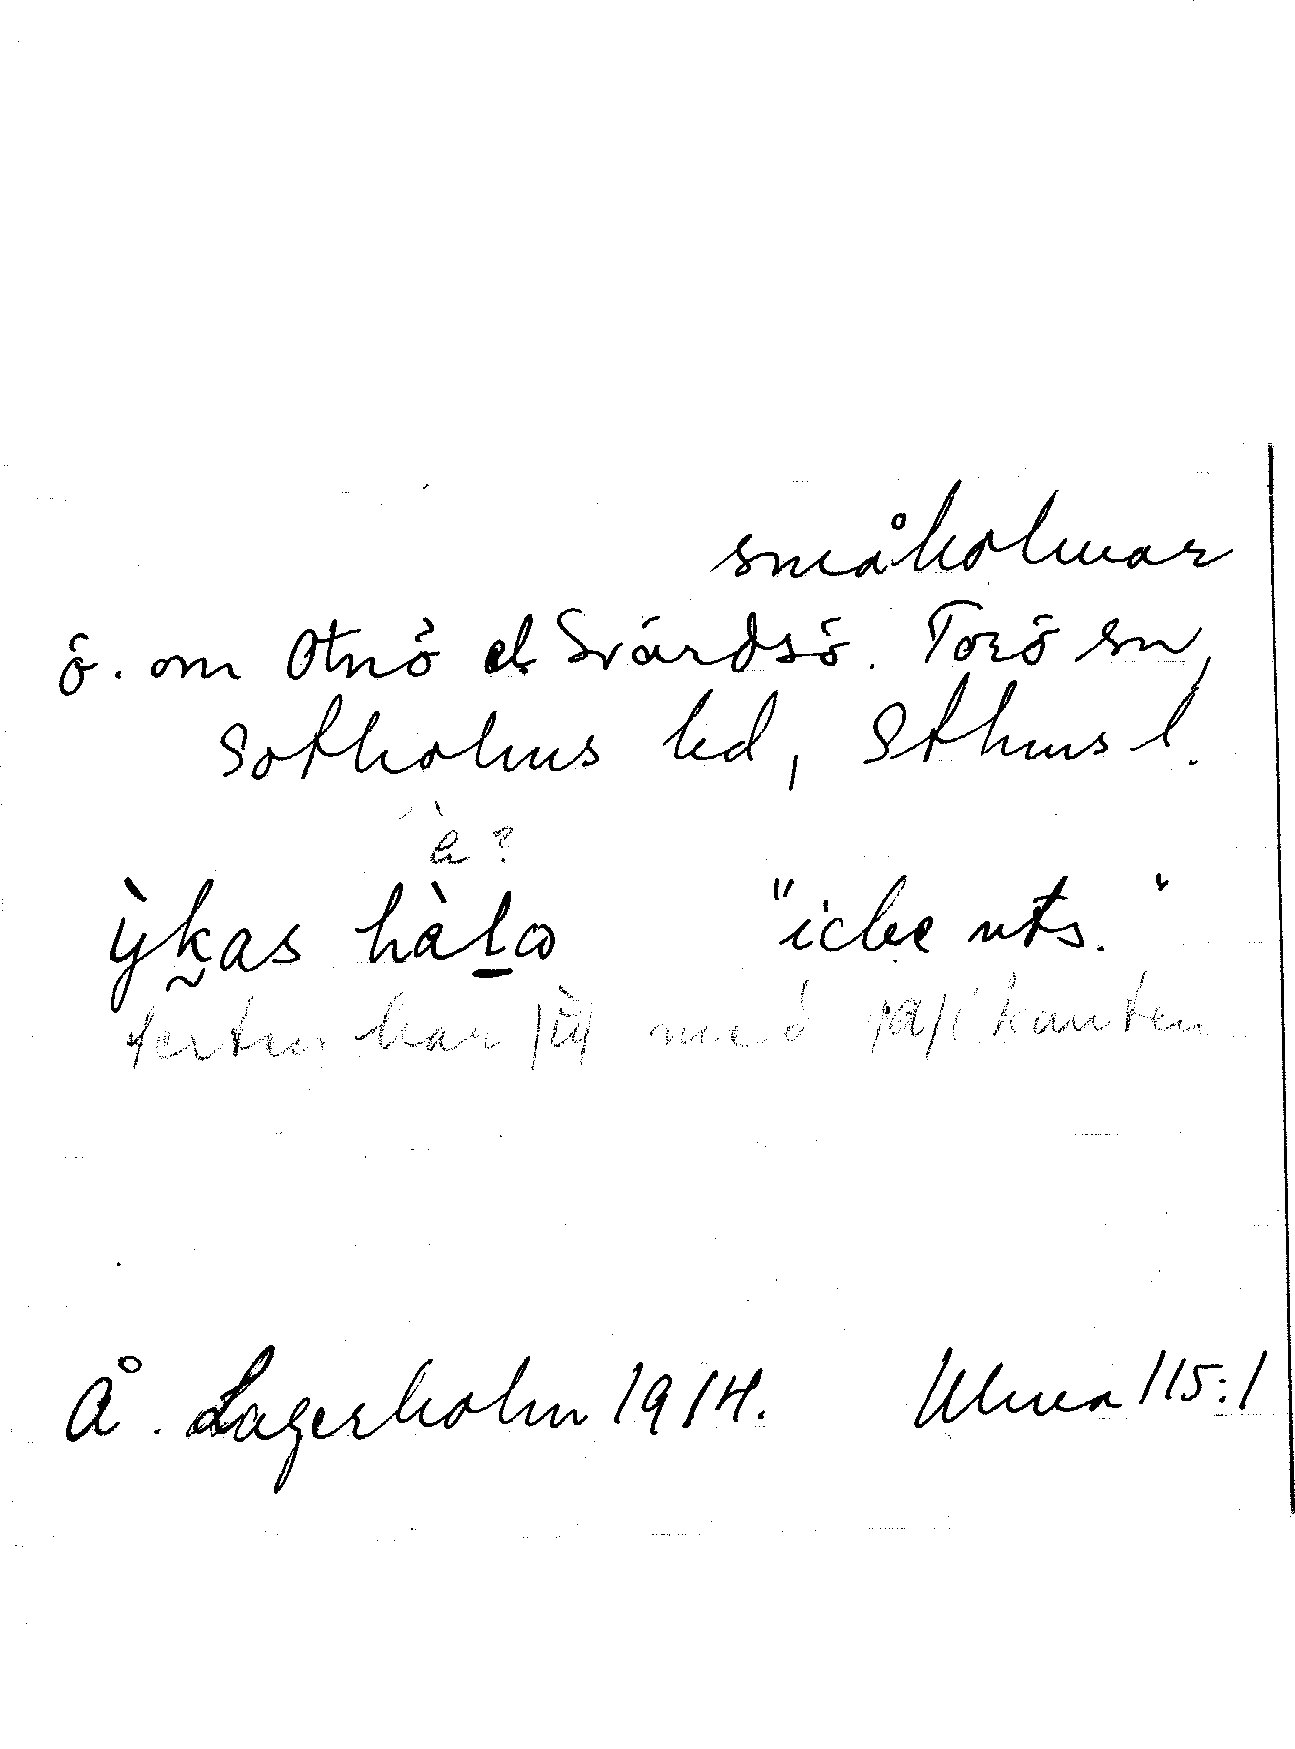 småholmar
ö. om Otnö el Svärdsö. Torö sn,
Sotholms hd, Sthms l.
è ?
ỳkas hàlo "icke uts."
har med i kanten
Å. Lagerholm 1914. Ulma 115:1